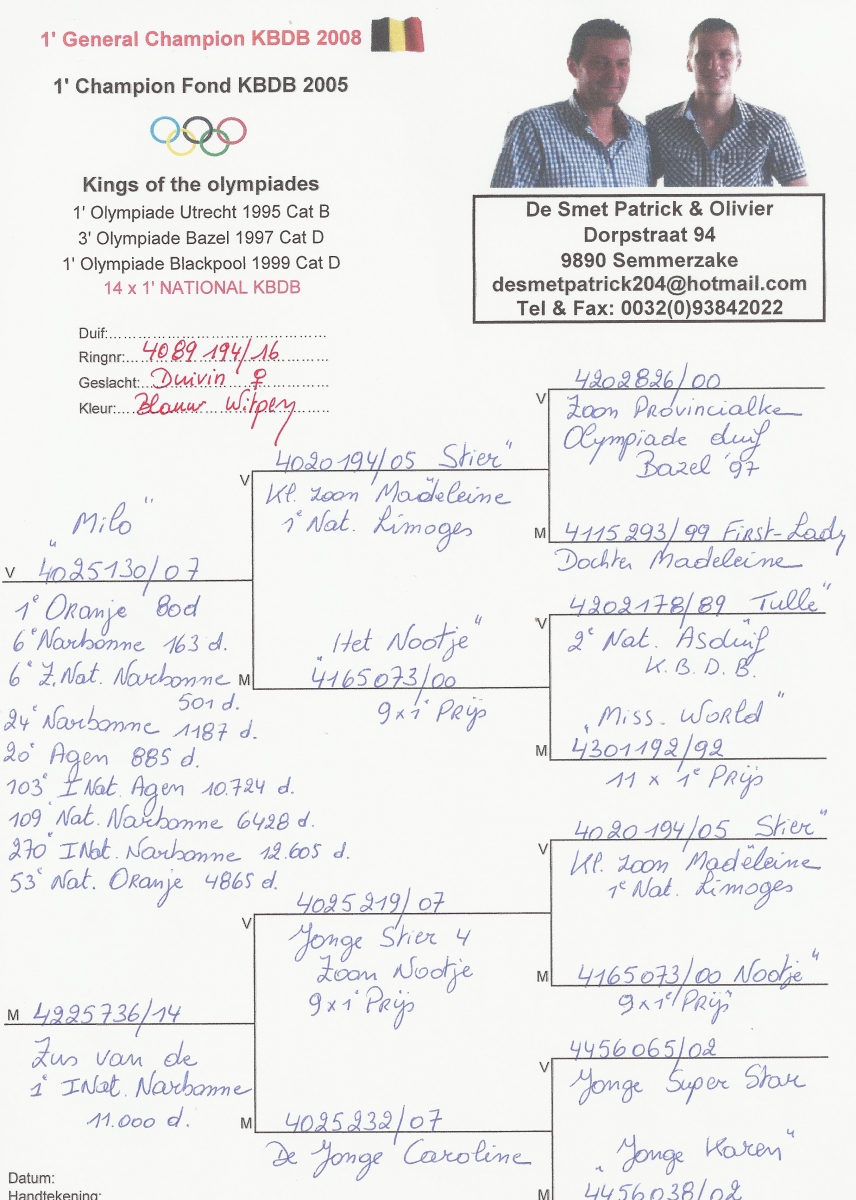 1' General Champion KBDB 2008
1' Champion Fond KBDB 2005
Kings of the olympiades
1' Olympiade Utrecht 1995 Cat B
3' Olympiade Bazel 1997 Cat D
1' Olympiade Blackpool 1999 Cat D
14 x 1' NATIONAL KBDB
De Smet Patrick & Olivier
Dorpstraat 94
9890 Semmerzake
desmetpatrick204@hotmail.com
Tel & Fax: 0032(0)93842022
Duif:
Ringnr: 4089 194/16
Geslacht: Duivin ♀
Kleur: Blauw Witpen
"Milo"
V 4025130/07
1e Oranje 80d
6e Narbonne 163 d.
6e Z.Nat. Narbonne
501 d.
24e Narbonne 1187 d.
20e Agen 885 d.
103e INat. Agen 10.724 d.
109e Nat. Narbonne 6428 d.
270e INat. Narbonne 12.605 d.
53e Nat. Oranje 4865 d.
M 4225736/14
Zus van de
1e INat. Narbonne
11.000 d.
V 4020194/05 Stier"
Kl. zoon Madeleine
1e Nat. Limoges
"Het Nootje"
M 4165073/00
9x1e Prijs
V 4025219/07
Jonge Stier 4
Zoon Nootje
9x1e Prijs
M 4025232/07
De Jonge Caroline
V 4202826/00
Zoon Provincialke
Olympiade duif
Bazel '97
M 4115293/99 First-Lady
Dochter Madeleine
V 4202178/89 Tulle"
2e Nat. Asduif
K.B.D.B.
"Miss-World"
M 4301192/92
11 x 1e Prijs
V 4020194/05 Stier"
Kl. zoon Madeleine
1e Nat. Limoges
M 4165073/00 Nootje"
9x1e Prijs
V 4456065/02
Jonge Super Star
"Jonge Karen"
M 4456038/02
Datum:
Handtekening: